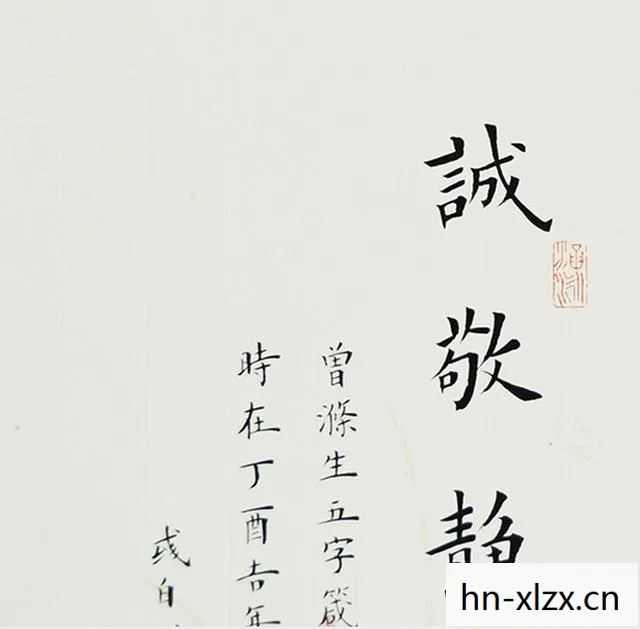 誠敬静
曾滌生五字箴
時在丁酉吉年
自
hn-xlzx.cn